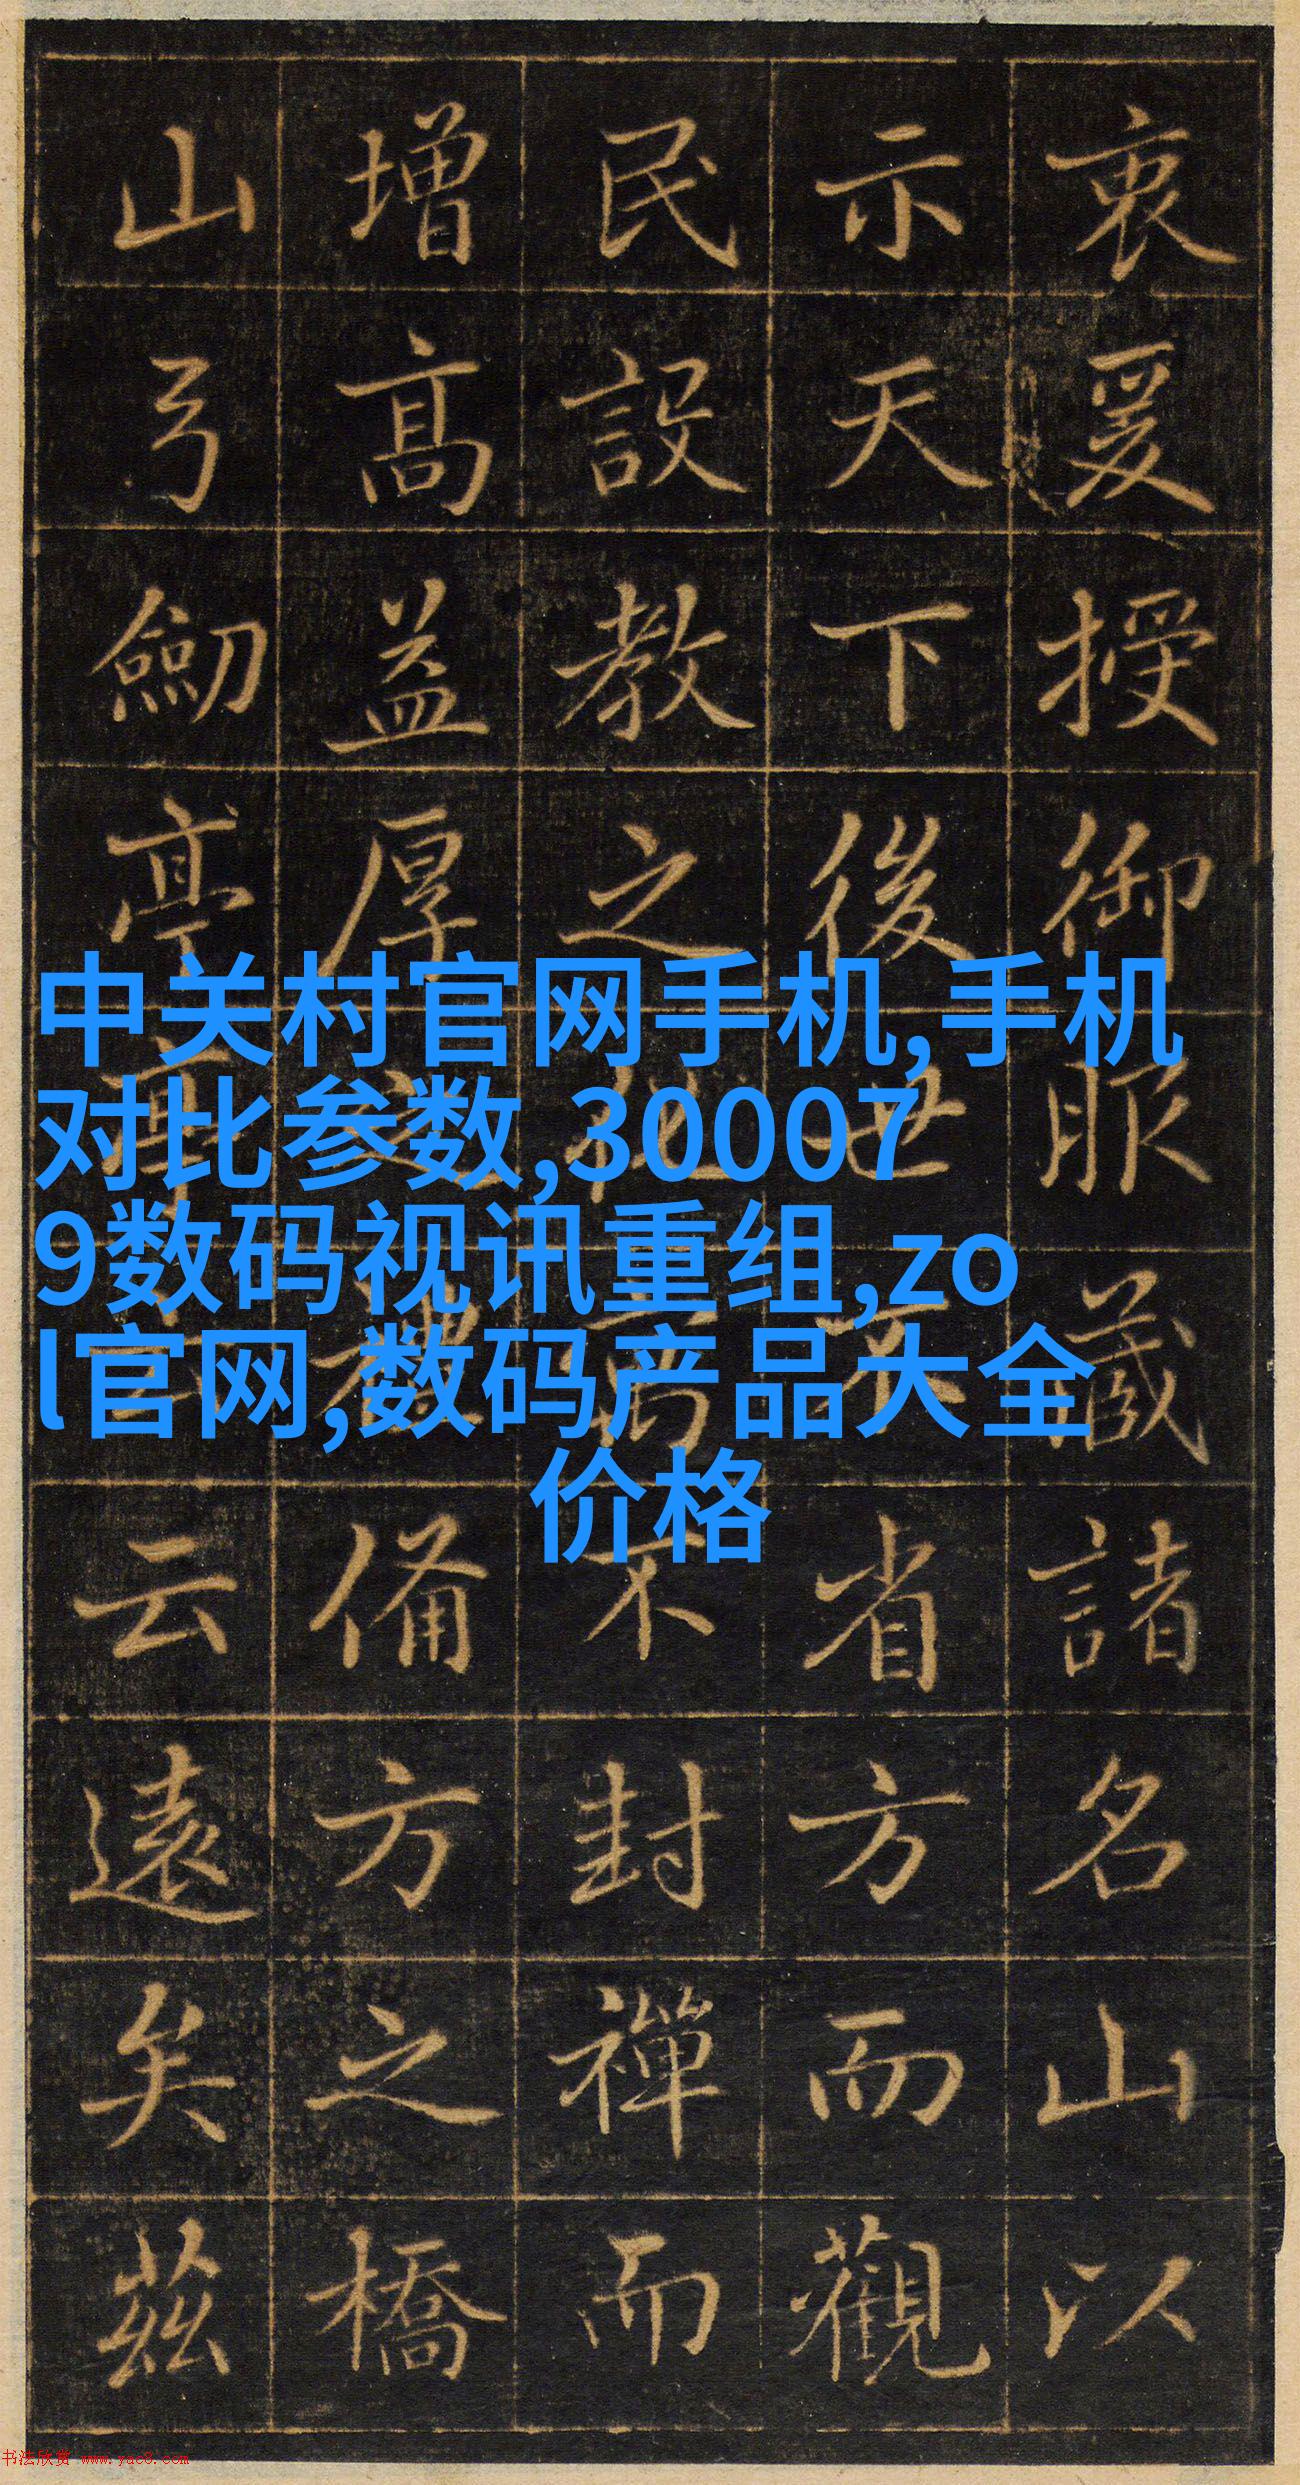 衷爰授御服藏諸名山以
示天下後世省方而觀
民設教之不封禪而
增高益厚之禮備方之橋
山弓劒亭亭云云遠矣茲
中关村官网手机,手机
对比参数,30007
9数码视讯重组,zo
l官网,数码产品大全
价格
书法欣赏 www.yac8.com